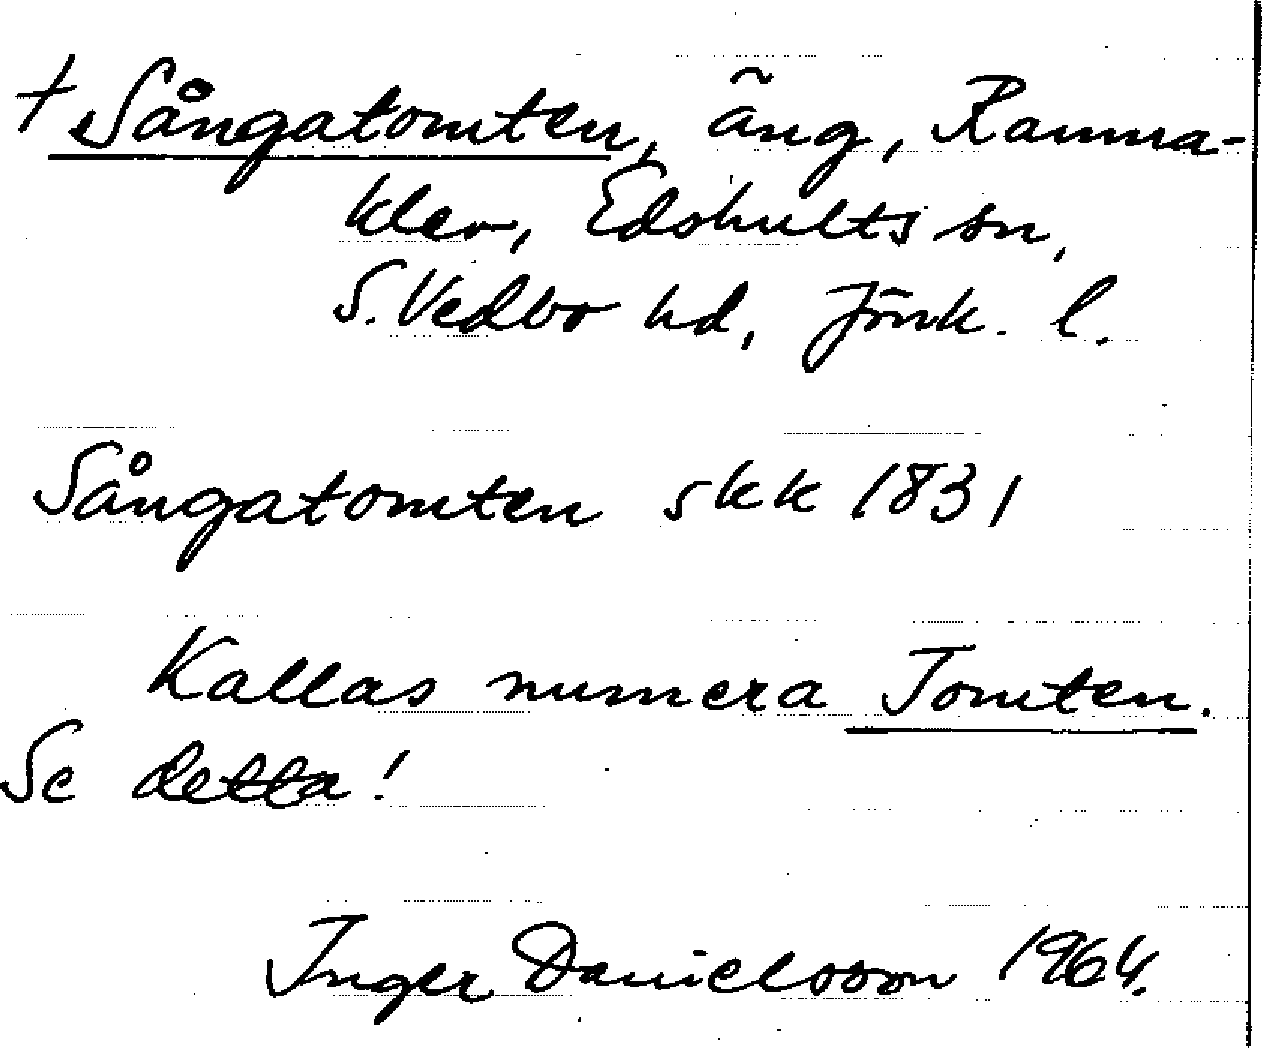 † Sångatomten, äng, Ramna-
klev, Edshults sn,
S. Vedbo hd, Jönk. l.
Sångatomten skk 1831
Kallas numera Tomten.
Se detta!
Inger Danielsson 1964.